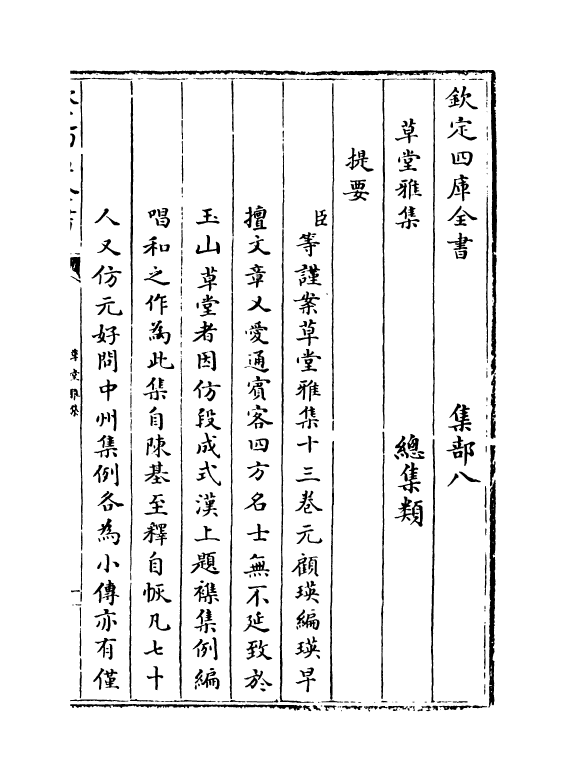 欽定四庫全書　集部八
草堂雅集　總集類
提要
臣等謹案草堂雅集十三卷元顧瑛編瑛早
擅文章又愛通賓客四方名士無不延致於
玉山草堂者因仿段成式漢上題襟集例編
唱和之作為此集自陳基至釋自恢凡七十
人又仿元好問中州集例各為小傳亦有僅
草堂雅集